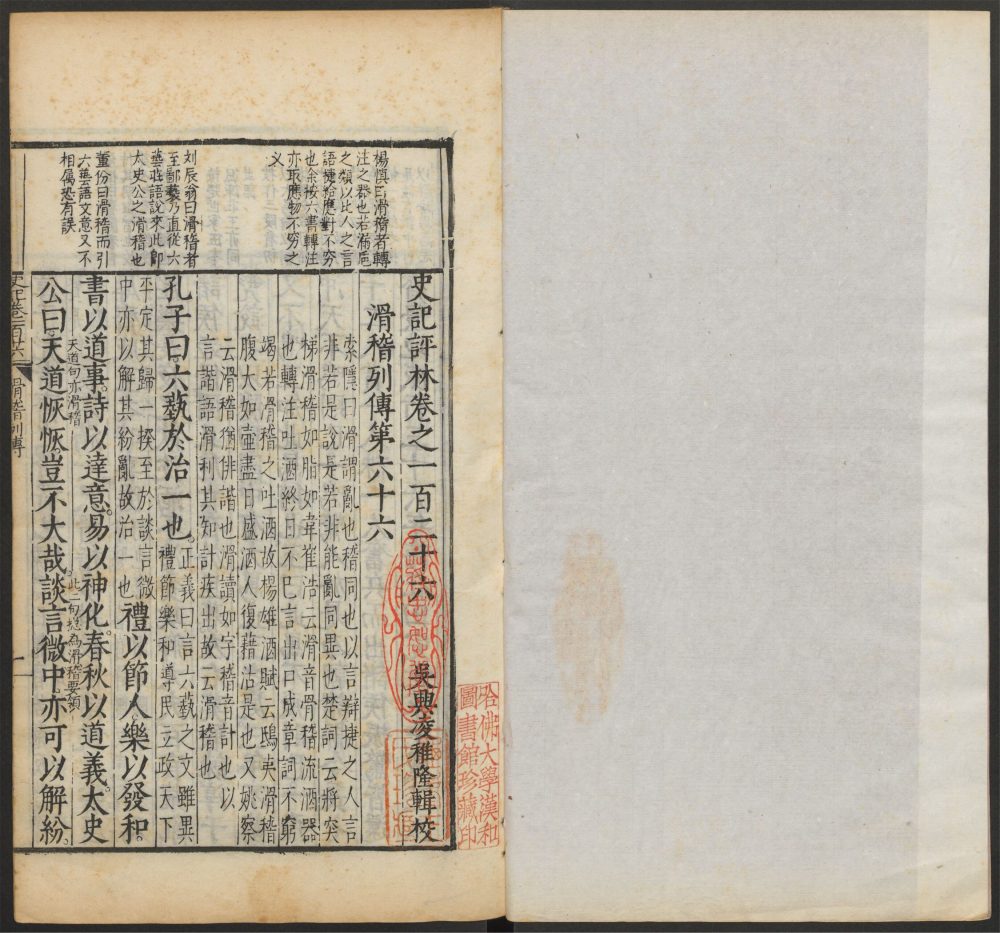 楊慎曰滑稽者轉
注之郡也若漏巵
之類以比人之言
語捷給應對不窮
也余按六書轉注
亦取應物不窮之
義
刘辰翁曰滑稽者
至鄙褻乃直從六
藝莊語說來此即
太史公之滑稽也
董份曰滑稽而引
六藝語文意又不
相属恐有誤
史記評林卷之一百二十六 吳興凌稚隆輯校
滑稽列傳第六十六
索隱曰滑謂亂也稽同也以言辯捷之人言
非若是說是若非能亂同異也楚詞云將突
梯滑稽如脂如韋崔浩云滑音骨稽流酒器
也轉注吐酒終日不已言出口成章詞不窮
竭若滑稽之吐酒故楊雄酒賦云鴟夷滑稽
腹大如壺盡日盛酒人復藉沽是也又姚察
云滑稽猶俳諧也滑讀如字稽音計也以
言諧語滑利其知計疾出故云滑稽也
孔子曰六藝於治一也。正義曰言六藝之文雖異
禮節樂和導民立政天下
平定其歸一揆至於談言微
中亦以解其紛亂故治一也
禮以節人。樂以發和。
書以道事。詩以達意。易以神化。春秋以道義。太史
天道句亦滑稽
公曰。天道恢恢。豈不大哉。談言微中。亦可以解紛。
此二句總為滑稽要領
史記卷一百廿六
滑稽列傳
一
哈佛大學漢和
圖書館珍藏印